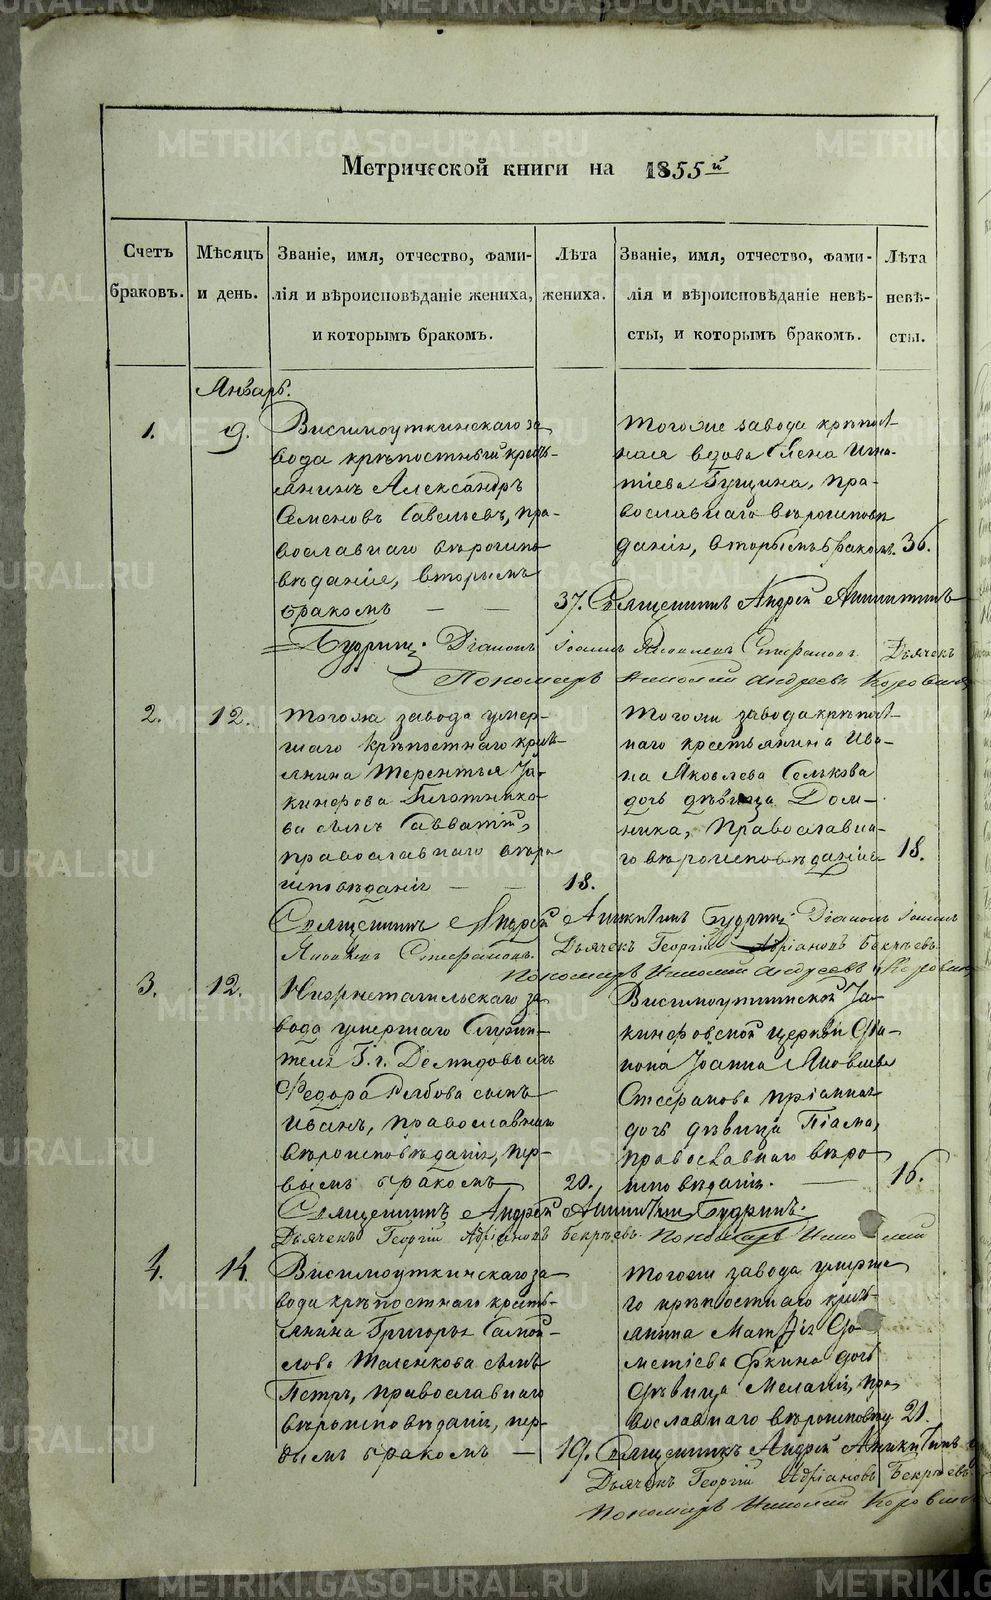 Метрической книги на 1855й
Счетъ браковъ.
Мѣсяцъ и день.
Званіе, имя, отчество, фами-
лія и вѣроисповѣданіе жениха,
и которымъ бракомъ.
Лѣта
жениха.
Званіе, имя, отчество, фами-
лія и вѣроисповѣданіе невѣ-
сты, и которымъ бракомъ.
Лѣта
невѣ-
сты.
Январь.
1.
9.
Висимоуткинскаго за
вода крѣпостный кресть-
янинъ Александръ
Семеновъ Савельевъ, пра-
вославнаго вѣроиспо
вѣданія, вторымъ
бракомъ
37.
Тогоже завода крѣпост-
ная вдова Елена Игна-
тіева Гущина, пра-
вославнаго вѣроисповѣ
данія, вторымъ бракомъ.
36.
Священникъ Андрей Аникитинъ
Будринъ. Діаконъ Іоаннъ Яковлевъ Стефановъ. Дьячекъ
Пономарь Николай Андреевъ Коровинъ
2.
12.
Тогоже завода умер-
шаго крѣпостнаго кресть-
янина Терентья Іа-
кинфова Плотнико-
ва сынъ Савватій,
православнаго вѣро
исповѣданія
18.
Тогоже завода крѣпост-
наго крестьянина Ива-
на Яковлева Селькова
дочь дѣвица Дом-
ника, православна-
го вѣроисповѣданія
18.
Священникъ Андрей Аникитинъ Будринъ. Діаконъ Іоаннъ
Яковлевъ Стефановъ. Дьячекъ Георгій Адріановъ Бекрѣевъ.
Пономарь Николай Андреевъ Коровинъ
3.
12.
Нижнетагильскаго за
вода умершаго Служи-
теля Г. г. Демидовыхъ
Федора Рябова сынъ
Иванъ, православнаго
вѣроисповѣданія, пер-
вымъ бракомъ
20.
Висимоуткинской Іа-
кинфовской церкви Діа-
кона Іоанна Яковлева
Стефанова пріемная
дочь дѣвица Піама,
православнаго вѣро
исповѣданія.
16.
Священникъ Андрей Аникитинъ Будринъ.
Дьячекъ Георгій Адріановъ Бекрѣевъ. Пономарь Николай
4.
14.
Висимоуткинскаго за
вода крѣпостнаго кресть-
янина Григорья Самой-
лова Таленкова сынъ
Петръ, православнаго
вѣроисповѣданія, пер-
вымъ бракомъ
19.
Тогоже завода умерша
го крѣпостнаго кресть-
янина Матѳія
Фокина дочь
дѣвица Меланія, пра
вославнаго вѣроисповѣд
21.
Священникъ Андрей Аникитинъ
Дьячекъ Георгій Адріановъ Бекрѣевъ
Пономарь Николай Коровинъ
METRIKI.GASO-URAL.RU